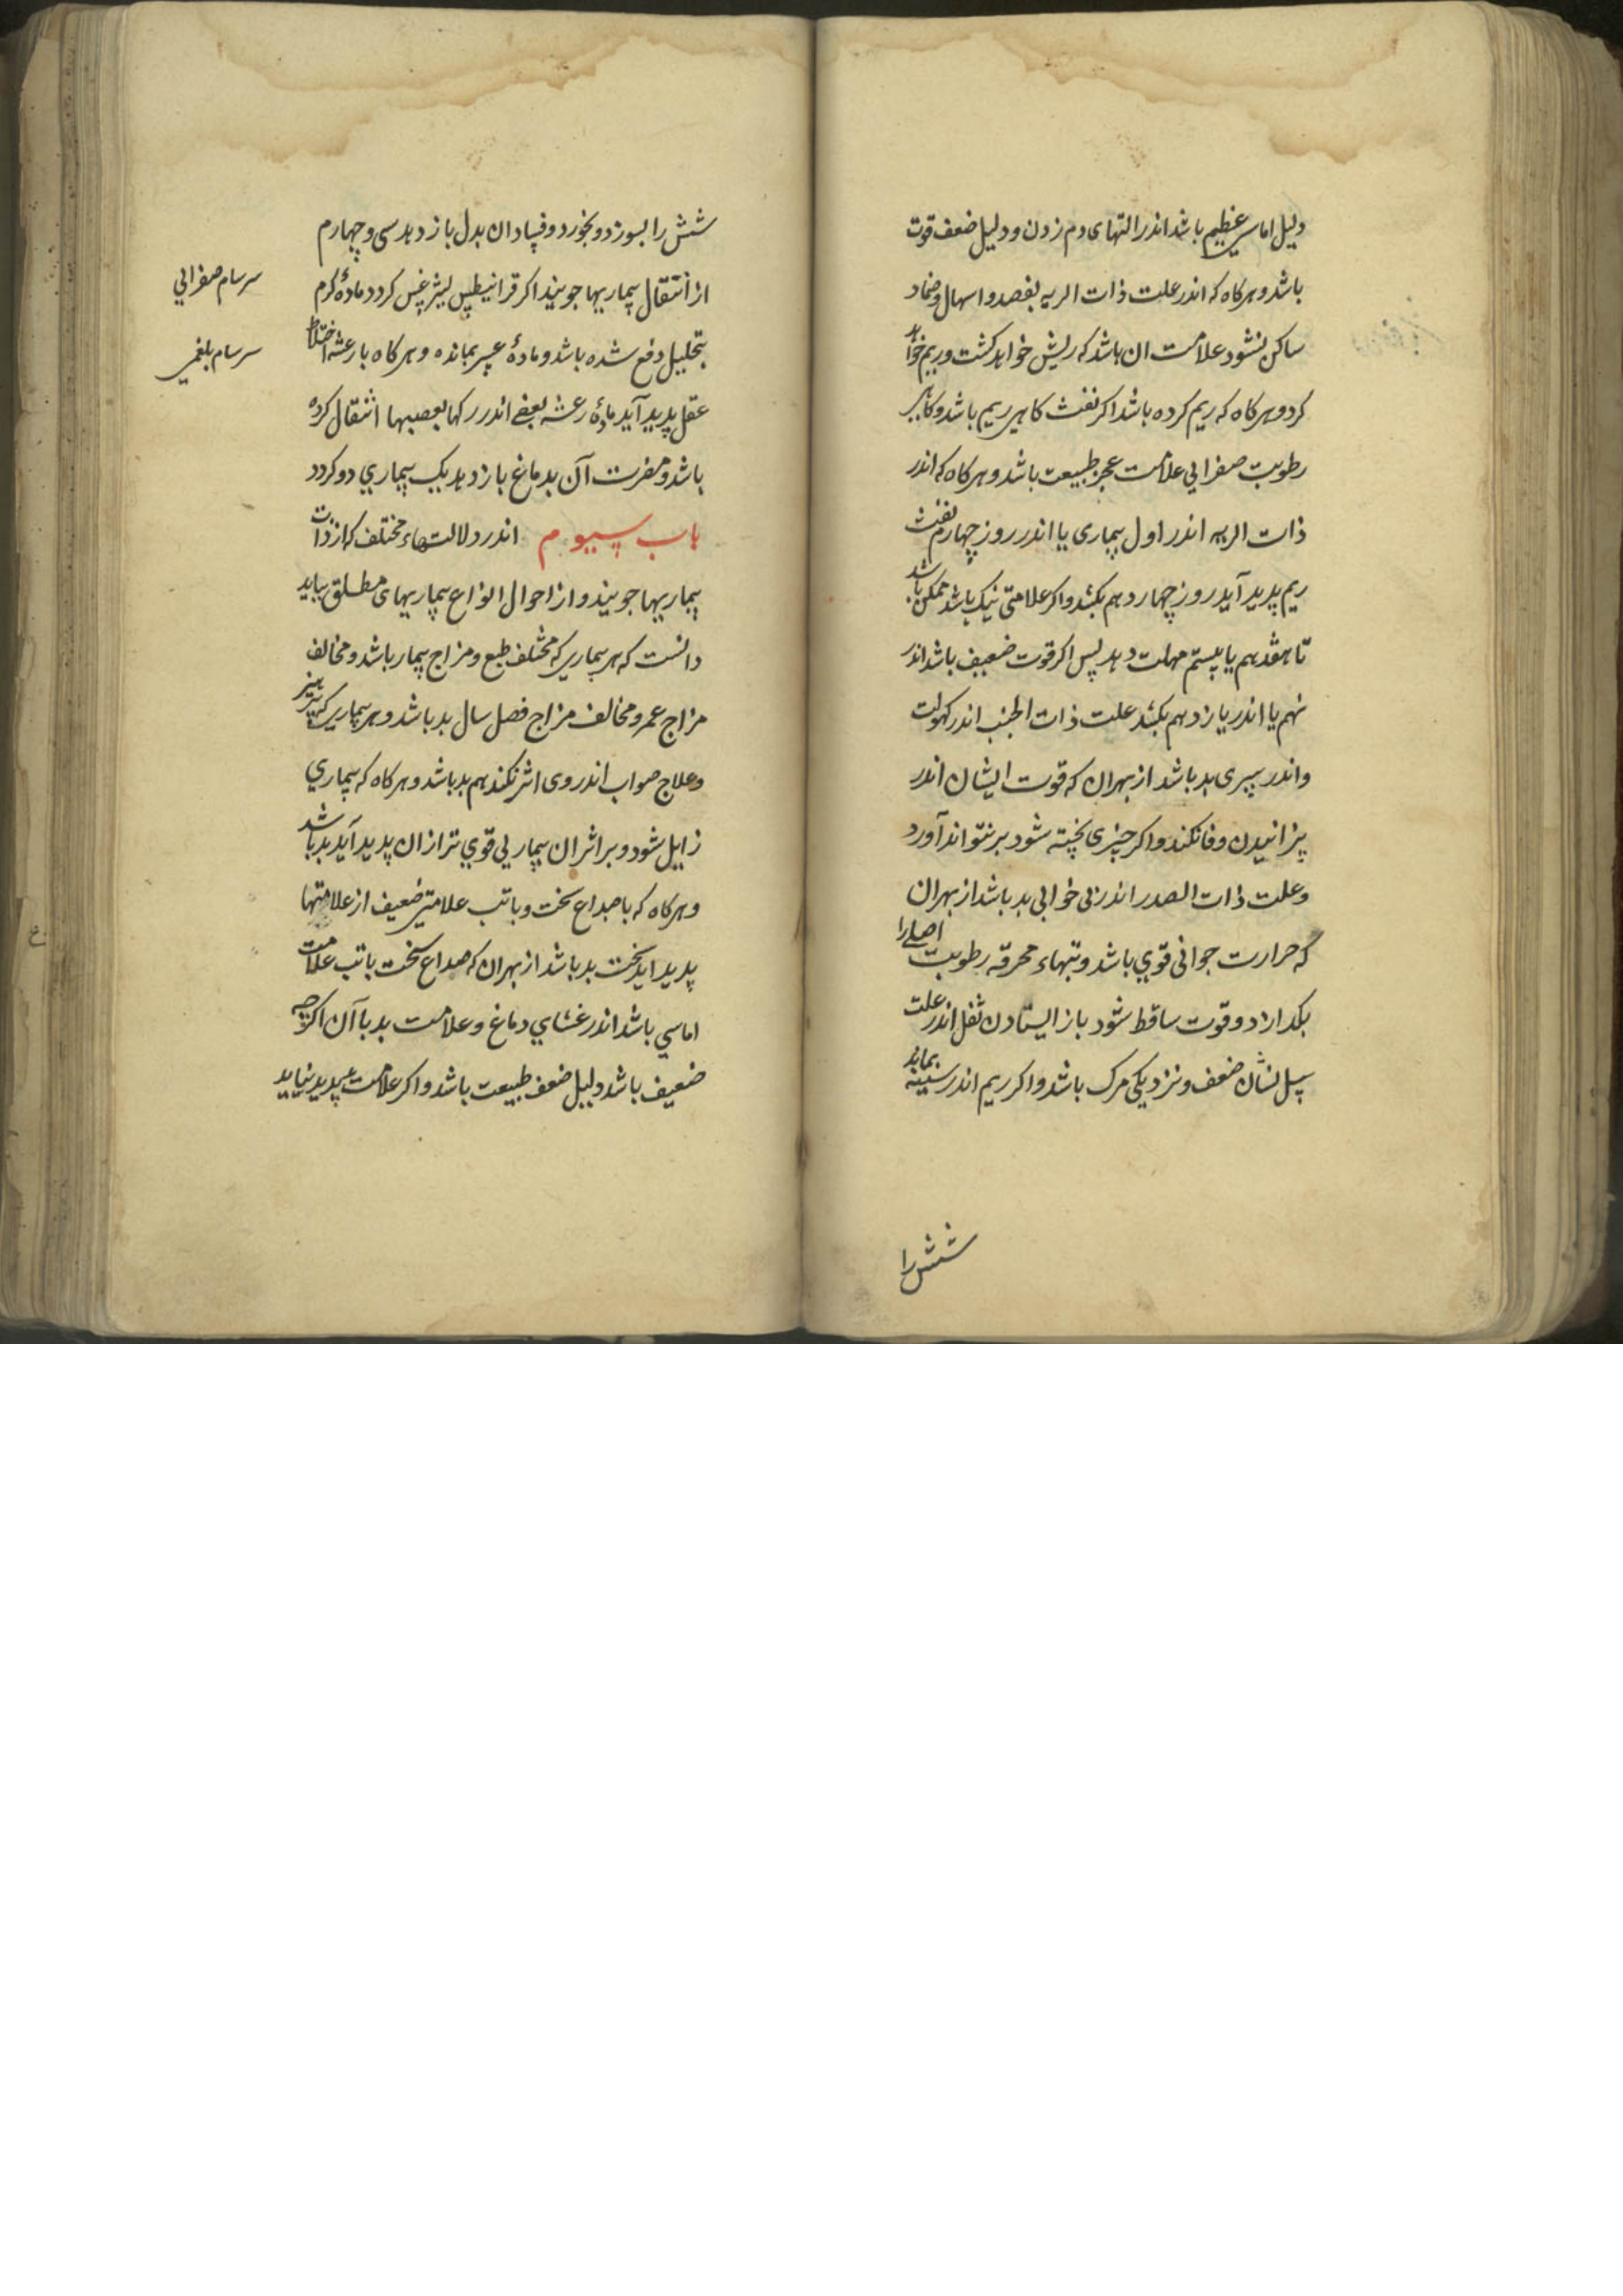 دلیل اماسی عظیم باشد اندر التهای دم زدن و دلیل ضعف قوت
باشد و هرکاه که اندر علت ذات الریه بفصد و اسهال و ضماد
ساکن نشود علامت ان باشد که ریش خواهد کشت و ریم خواهد
کرد و هرکاه که ریم کرده باشد اکر نفث کاهی ریم باشد و کاهی
رطوبت صفرایی علامت عجز طبیعت باشد و هرکاه که اندر
ذات الریه اندر اول بیماری یا اندر روز چهارم نفث
ریم پدید آید روز چهاردهم بکشد واکر علامتی نیک باشد ممکن باشد
تا هفدهم یا بیستم مهلت دهد پس اکر قوت ضعیف باشد اندر
نهم یا اندر یازدهم بکشد علت ذات الجنب اندر کهولت
واندر پیری بد باشد از بهران که قوت ایشان اندر
پزانیدن وفا نکند واکر چیزی پخته شود بر نتواند آورد
وعلت ذات الصدر اندر بی خوابی بد باشد از بهران
که حرارت جوانی قوی باشد وتبهاء محرقه رطوبت اصلی را
بکدازد وقوت ساقط شود باز ایستادن ثفل اندر علت
سل نشان ضعف و نزدیکی مرک باشد واکر ریم اندر سینه بماند
شش را
شش را بسوزد و بخورد وفساد ان بدل باز دهد سی و چهارم
از انتقال بیماریها جویند اکر قرانیطس لیثرغس کردد مادۀ کرم
بتحلیل دفع شده باشد و مادۀ بمانده و هرکاه با رعشه اختلاط
عقل پدید آید مادۀ رعشه بعضی اندر رکها بعصبها انتقال کرده
باشد و مضرت آن بدماغ باز دهد یک بیماری دو کردد
باب سیوم اندر دلالتهاء مختلف که از ذات
بیماریها جویند و از احوال انواع بیماریهای مطلق بباید
دانست که هر بیماریی که مختلف طبع و مزاج بیمار باشد و مخالف
مزاج عمر و مخالف مزاج فصل سال بد باشد و هر بیماریی که پرهیز
وعلاج صواب اندر وی اثر نکند هم بد باشد و هرکاه که بیماری
زایل شود و بر اثر ان بیماریی قوی تر از ان پدید آید بد باشد
وهرکاه که با صداع سخت و با تب علامتی ضعیف از علامتها
پدید اید سخت بد باشد از بهران که صداع سخت با تب علامت
اماسی باشد اندر غشای دماغ و علامت بد با آن اکرچه
ضعیف باشد دلیل ضعف طبیعت باشد واکر علامت پدید نیاید
سرسام صفرایی
سرسام بلغمی